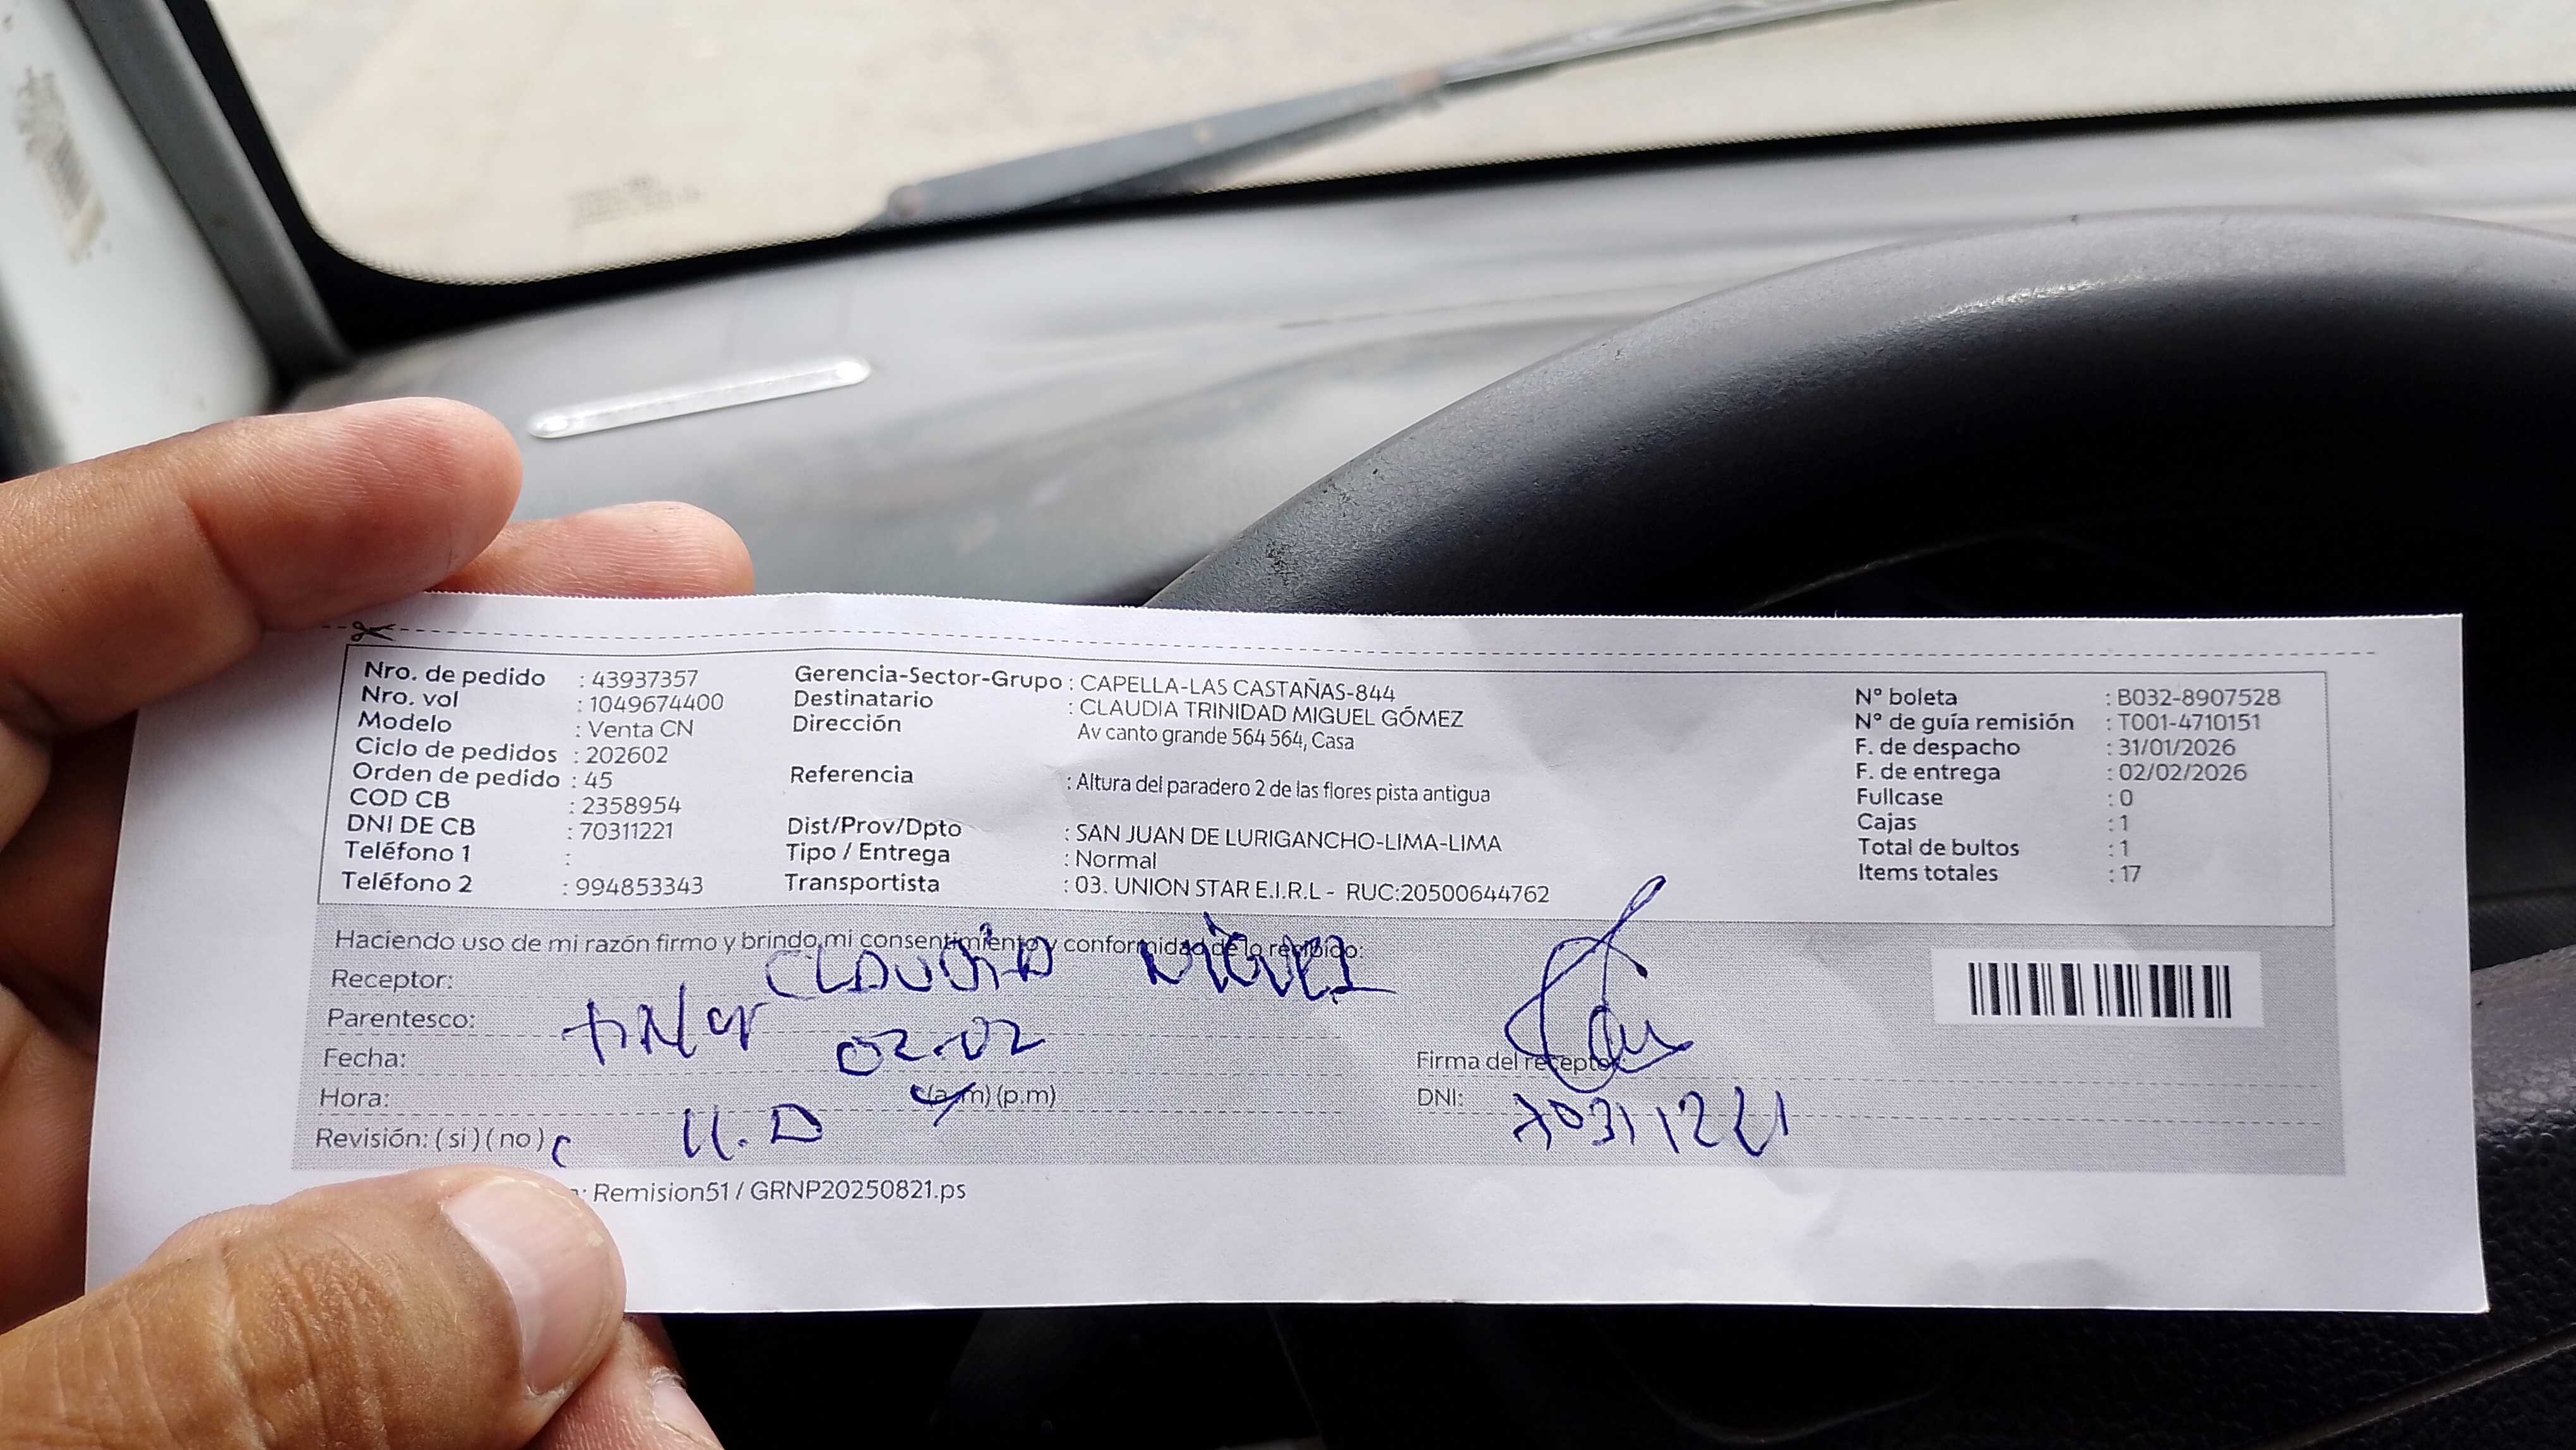 Nro. de pedido : 43937357
Nro. vol : 1049674400
Modelo : Venta CN
Ciclo de pedidos : 202602
Orden de pedido : 45
COD CB : 2358954
DNI DE CB : 70311221
Teléfono 1 :
Teléfono 2 : 994853343
Gerencia-Sector-Grupo : CAPELLA-LAS CASTAÑAS-844
Destinatario : CLAUDIA TRINIDAD MIGUEL GÓMEZ
Dirección Av canto grande 564 564, Casa
Referencia : Altura del paradero 2 de las flores pista antigua
Dist/Prov/Dpto : SAN JUAN DE LURIGANCHO-LIMA-LIMA
Tipo / Entrega : Normal
Transportista : 03. UNION STAR E.I.R.L - RUC:20500644762
N° boleta : B032-8907528
N° de guía remisión : T001-4710151
F. de despacho : 31/01/2026
F. de entrega : 02/02/2026
Fullcase : 0
Cajas : 1
Total de bultos : 1
Items totales : 17
Haciendo uso de mi razón firmo y brindo mi consentimiento y conformidad de lo recibido:
Receptor: CLAUDIA MIGUEL
Parentesco:
Fecha: 02-02
Hora: (a.m) (p.m)
Revisión: (si) (no)
Firma del receptor:
DNI: 70311221
Remision51 / GRNP20250821.ps